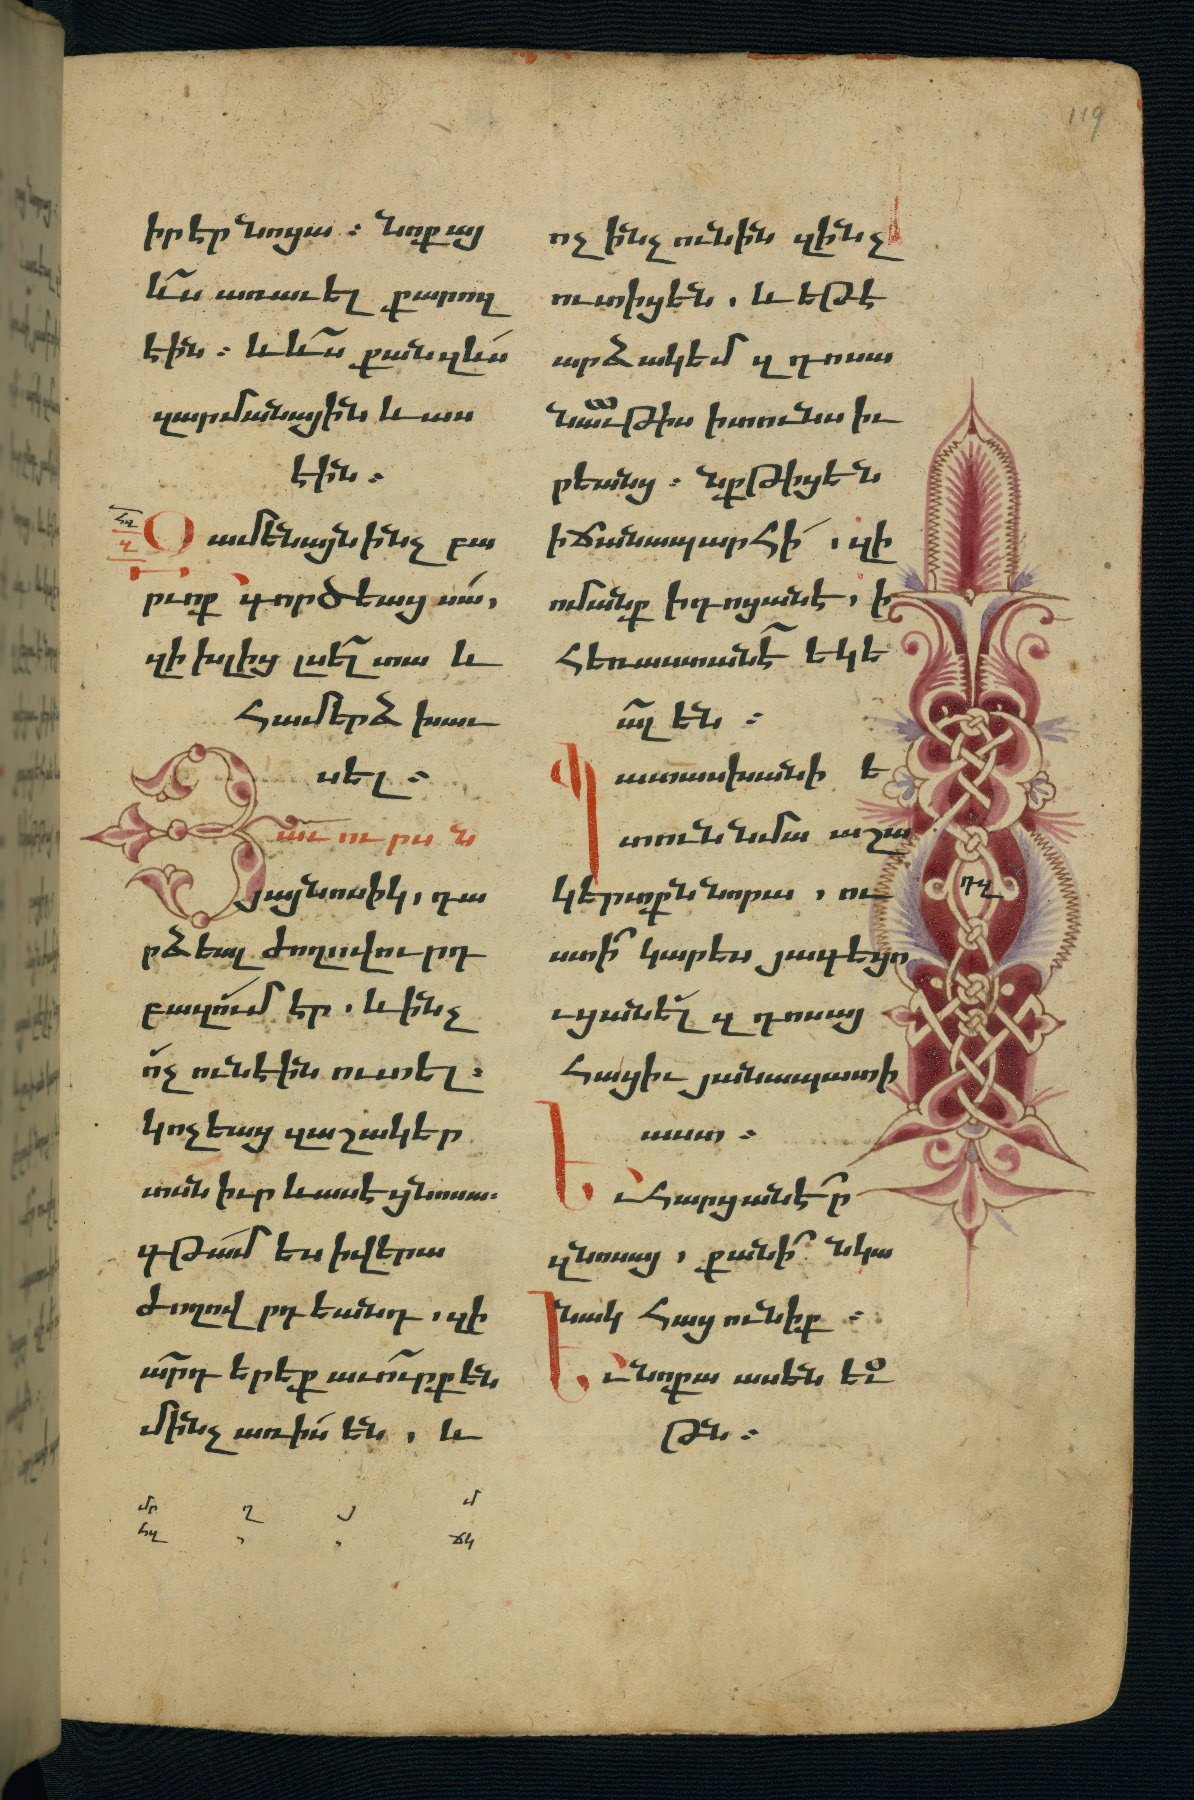 իրէր նոցա ։ նոքայ
և՛ս առաւել քարոզ
էին ։ և և՛ս քան զևս
զարմանային և աս
էին ։
հզ
գ
Զ ամենայն ինչ բա
րւոք գործեաց սա,
զի խլից լսել տա և
համերձ խաւ
սել ։
Յ աւուրս ն
յայնոսիկ, դա
րձեալ ժողովուրդ
բազում էր, և ինչ
ոչ ունէին ուտել ։
կոչեաց զաշակեր
տսն իւր և ասէ ցնոսա ։
գթամ ես ի վերա
ժողով րդ եանդ, զի
արդ երեք աւուրք են
մինչ առ իս են, և
ոչ ինչ ունին զինչ
ուտիցեն, և եթէ
արձակեմ զ դոսա
նաւթիս ի տունս իւ
րեանց ։ նքթիցեն
ի ճանապարհի, զի
ոմանք ի դոցանէ, ի
հեռաստանէ եկե
ալ են ։
Պ ատասխանի ե
տուն նմա աշա
կերտքն նորա, ու
ստի կարես յագեցո
ւցանել զ դոսայ
հացիւ յանապատի
աստ ։
Եւ հարցանէր
ցնոսայ, քանի նկա
նակ հաց ունիք ։
Եւ նոքա ասեն եւ
թն ։
119